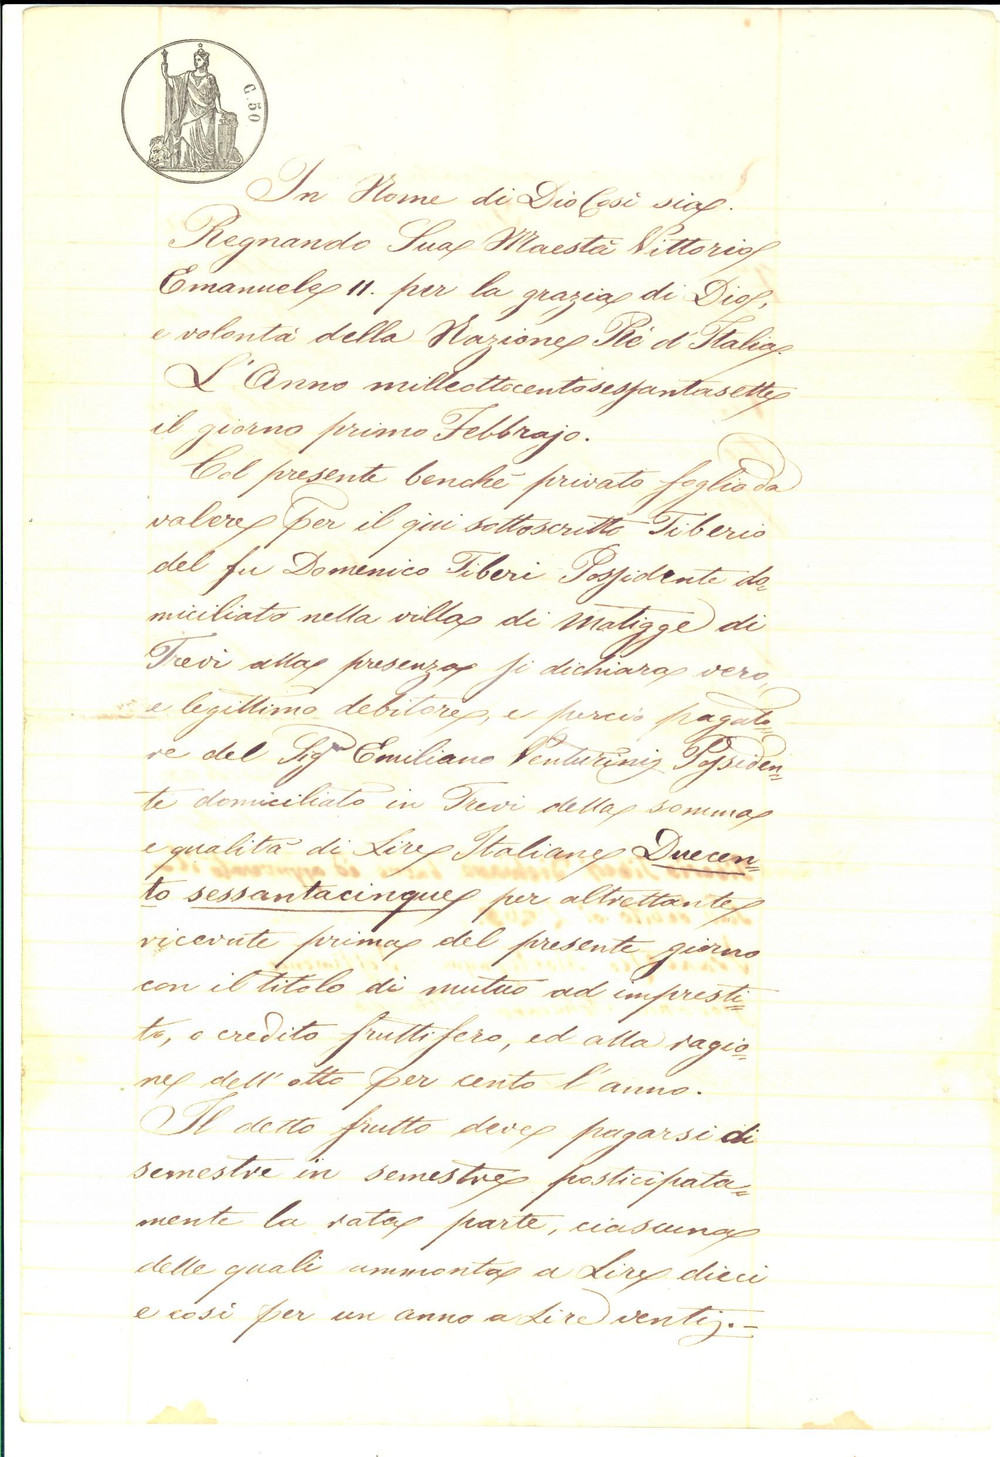 C. 50
In Nome di Dio Così sia.
Regnando Sua Maestà Vittorio
Emanuele II. per la grazia di Dio,
e volontà della Nazione Rè d'Italia.
L'Anno milleottocentosessantasette
il giorno primo Febbrajo.
Col presente benchè privato foglio da
valere per il qui sottoscritto Tiberio
del fu Domenico Tiberi Possidente do=
miciliato nella villa di Matigge di
Trevi alla presenza si dichiara vero,
e legittimo debitore, e perciò pagato=
re del Sigr Emiliano Venturini Possiden=
te domiciliato in Trevi della somma
e qualità di Lire Italiane Duecen=
to sessantacinque per altrettante
ricevute prima del presente giorno
con il titolo di mutuo ad impresti=
to, o credito fruttifero, ed alla ragio=
ne dell'otto per cento l'anno.
Il detto frutto deve pagarsi di
semestre in semestre posticipata=
mente la rata parte, ciascuna
delle quali ammonta a Lire dieci
e così per un anno a Lire venti.=